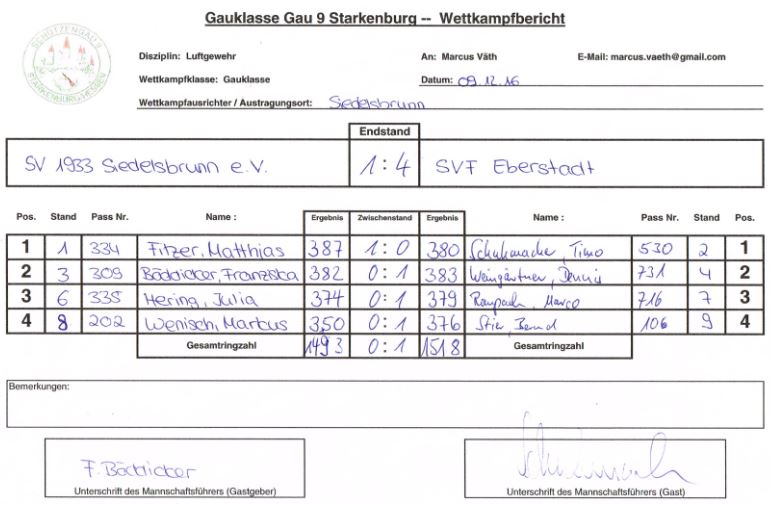 Gauklasse Gau 9 Starkenburg -- Wettkampfbericht
SCHÜTZENGAU 9
STARKENBURG/HESSEN
Disziplin: Luftgewehr An: Marcus Väth E-Mail: marcus.vaeth@gmail.com
Wettkampfklasse: Gauklasse Datum: 09.12.16
Wettkampfausrichter / Austragungsort: Siedelsbrunn
Endstand
SV 1933 Siedelsbrunn e.V. 1:4 SVF Eberstadt
Pos. Stand Pass Nr. Name : Ergebnis Zwischenstand Ergebnis Name : Pass Nr. Stand Pos.
1 1 334 Fitzer, Matthias 387 1:0 380 Schuhmacher, Timo 530 2 1
2 3 309 Böddicker, Franziska 382 0:1 383 Weingärtner, Dennis 731 4 2
3 6 335 Hering, Julia 374 0:1 379 Raupach, Marco 716 7 3
4 8 202 Wenisch, Markus 350 0:1 376 Stier, Bernd 106 9 4
Gesamtringzahl 1493 0:1 1518 Gesamtringzahl
Bemerkungen:
F. Böddicker
Unterschrift des Mannschaftsführers (Gastgeber) Unterschrift des Mannschaftsführers (Gast)